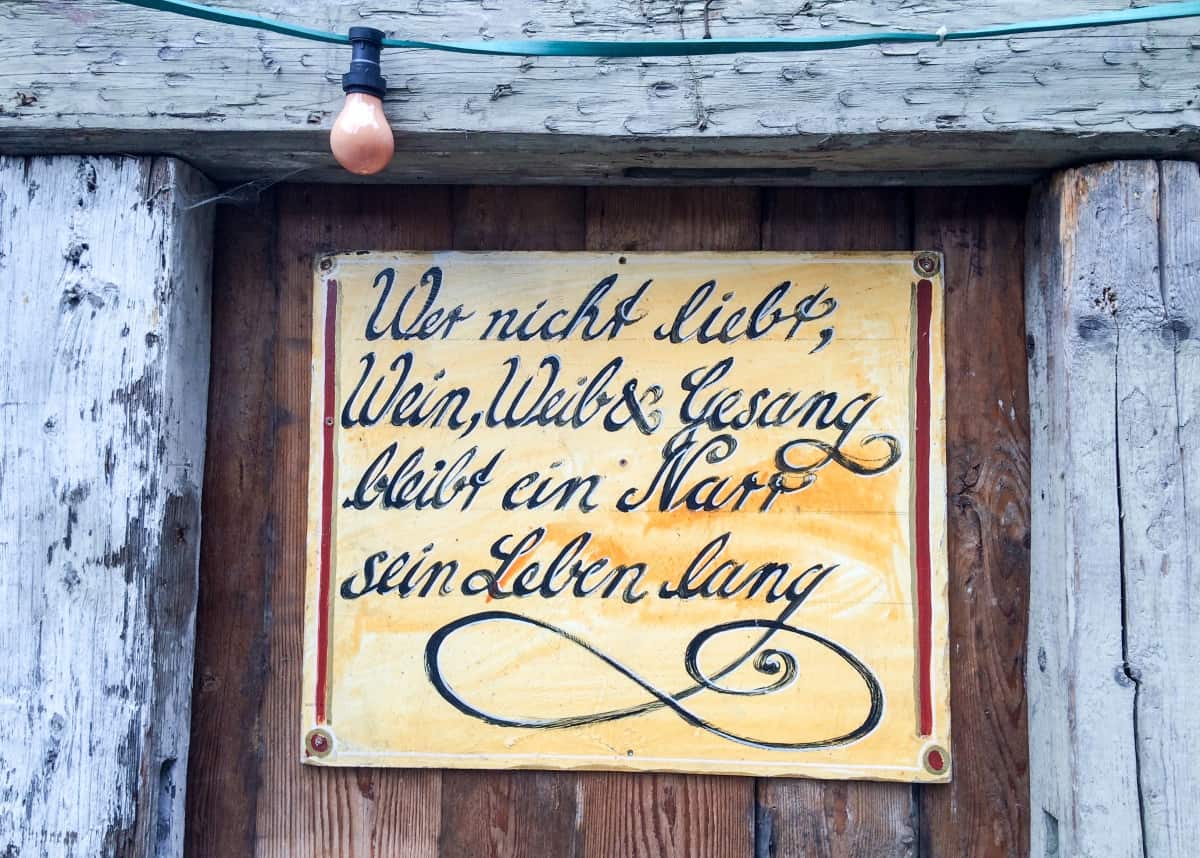 Wer nicht liebt,
Wein, Weib & Gesang
bleibt ein Narr
sein Leben lang